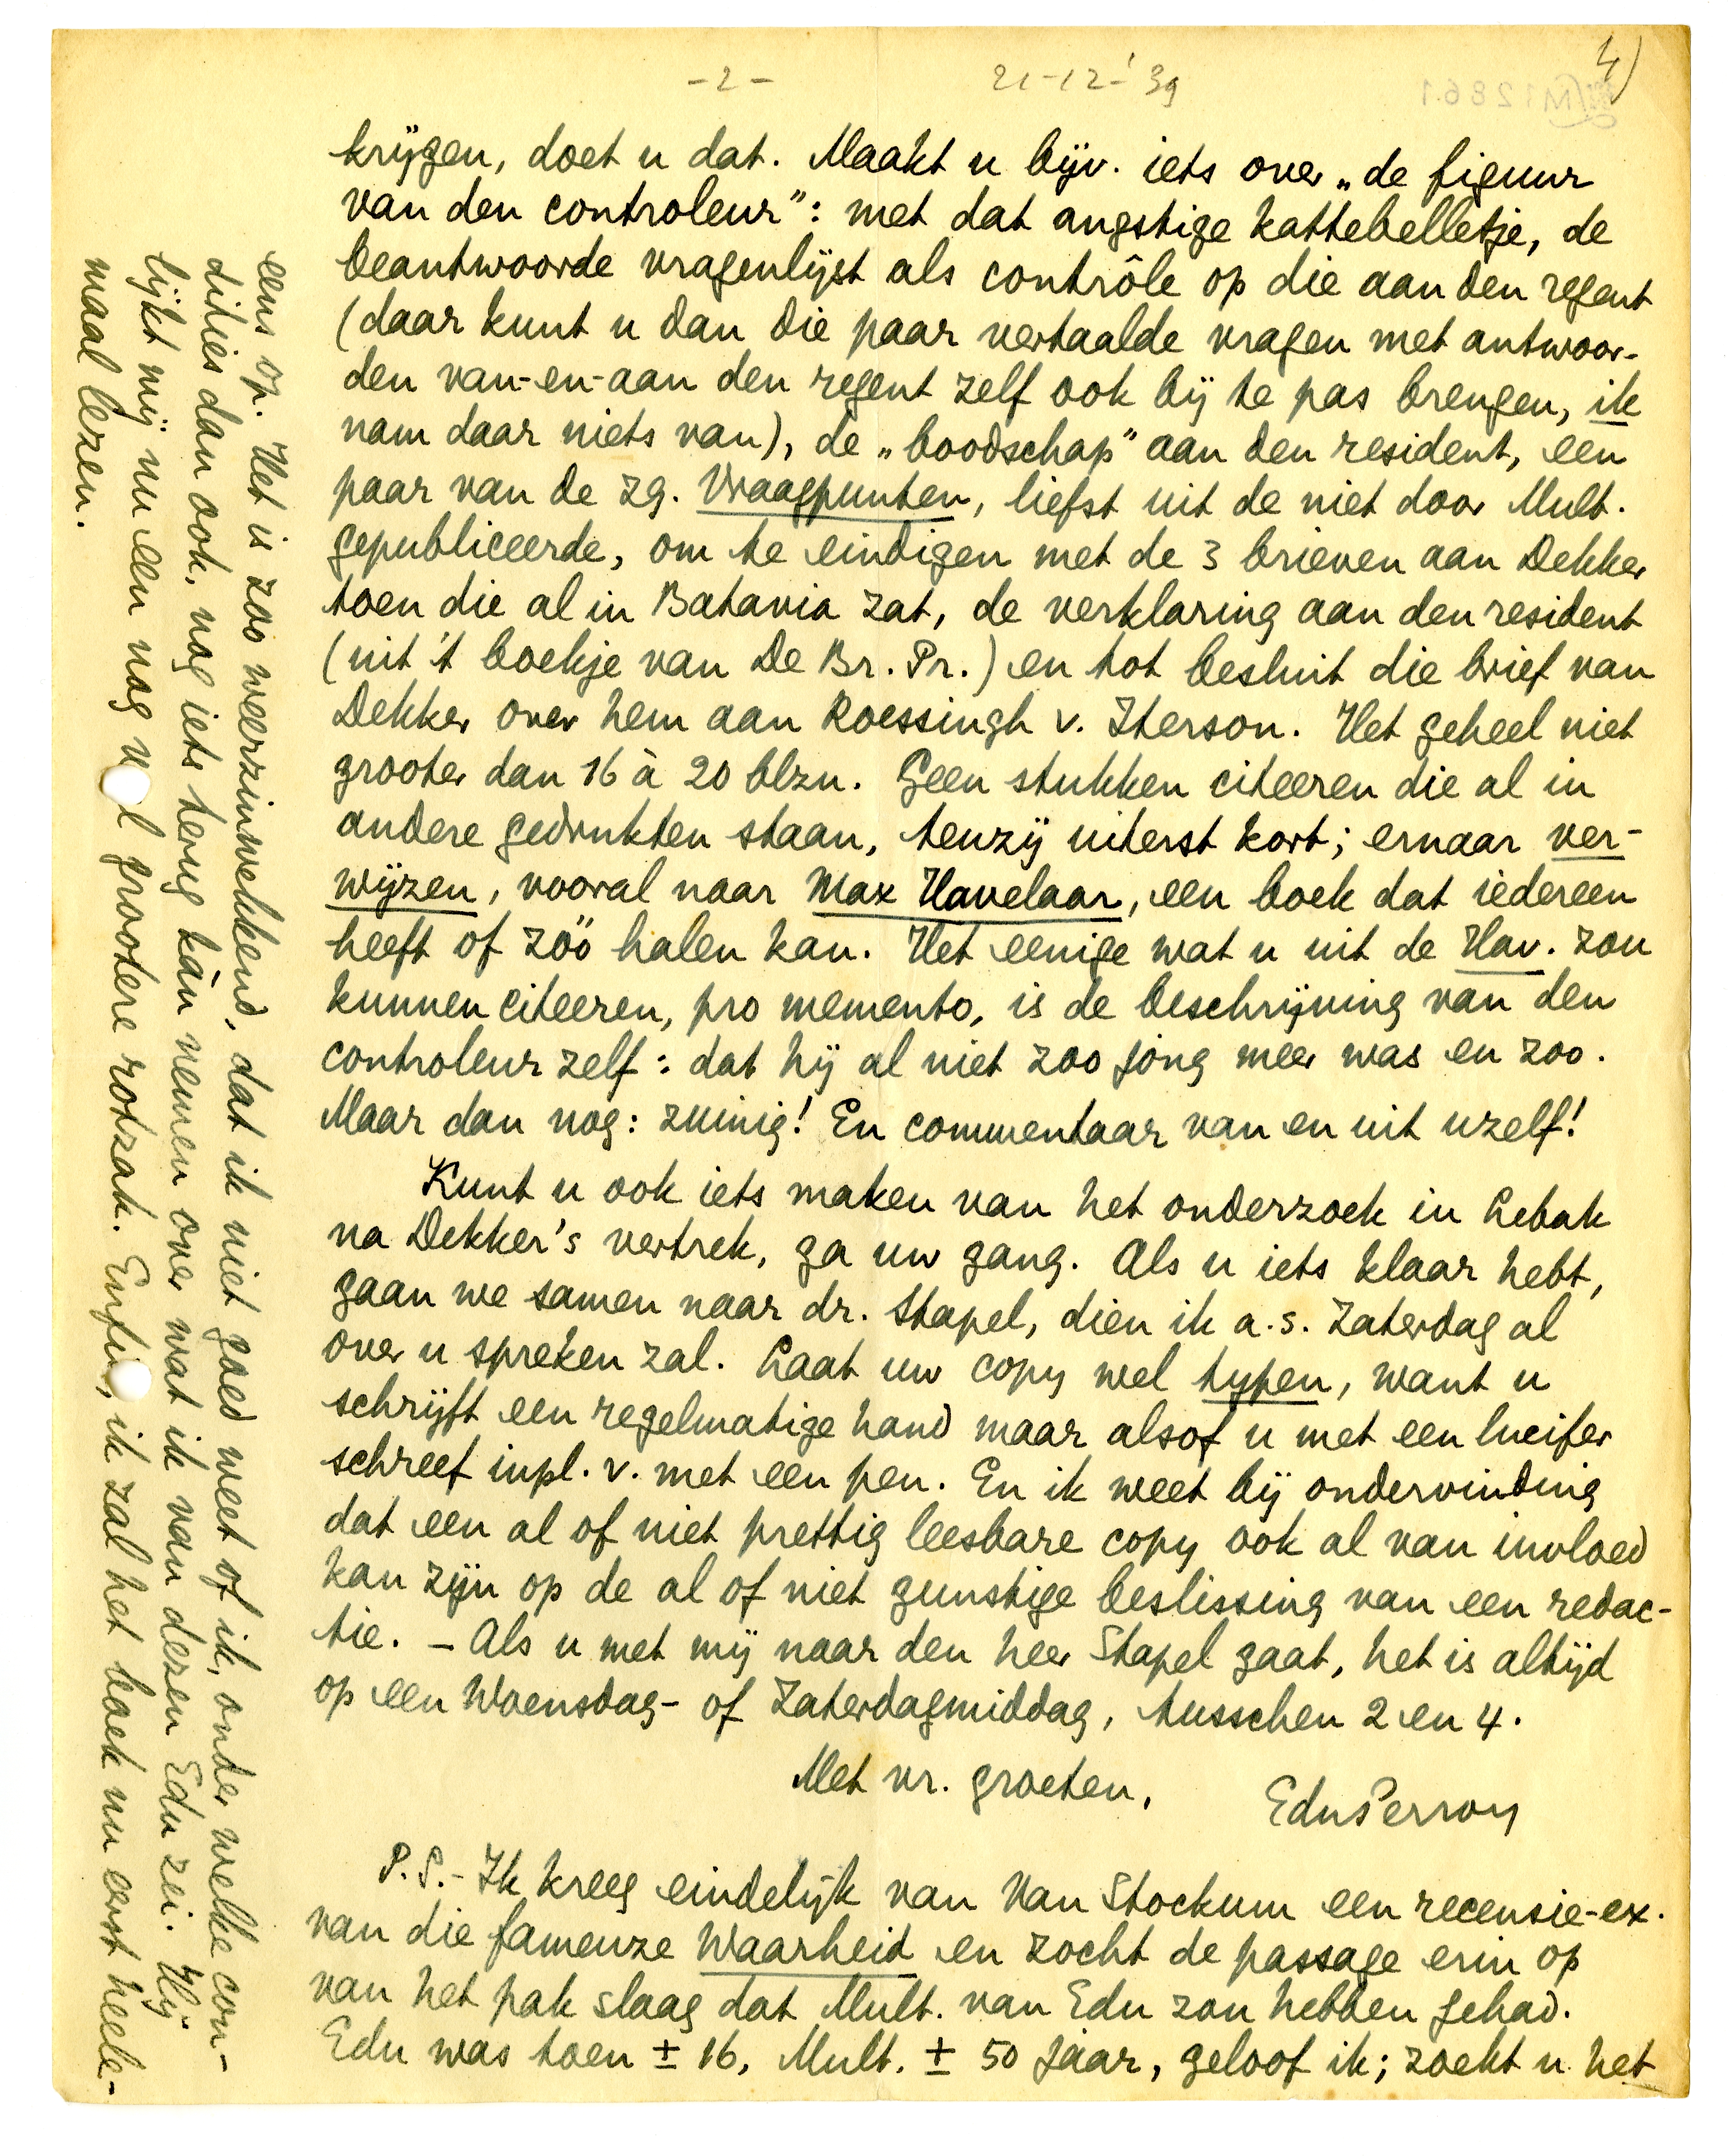 - 2 -
21-12-'39
4)
krijgen, doet u dat. Maakt u bijv. iets over „de figuur
van den controleur”: met dat angstige kattebelletje, de
beantwoorde vragenlijst als contrôle op die aan den regent
(daar kunt u dan die paar vertaalde vragen met antwoor-
den van-en-aan den regent zelf ook bij te pas brengen, ik
nam daar niets van), de „boodschap” aan den resident, een
paar van de zg. Vraagpunten, liefst uit de niet door Mult.
gepubliceerde, om te eindigen met de 3 brieven aan Dekker
toen die al in Batavia zat, de verklaring aan den resident
(uit 't boekje van De Br. Pr.) en tot besluit die brief van
Dekker over hem aan Roessingh v. Iterson. Het geheel niet
grooter dan 16 à 20 blzn. Geen stukken citeeren die al in
andere gedrukten staan, tenzij uiterst kort; ernaar ver-
wijzen, vooral naar Max Havelaar, een boek dat iedereen
heeft of zóó halen kan. Het eenige wat u uit de Hav. zou
kunnen citeeren, pro memento, is de beschrijving van den
controleur zelf: dat hij al niet zoo jong meer was en zoo.
Maar dan nog: zuinig! En commentaar van en uit uzelf!
Kunt u ook iets maken van het onderzoek in Lebak
na Dekker's vertrek, ga uw gang. Als u iets klaar hebt,
gaan we samen naar dr. Stapel, dien ik a.s. Zaterdag al
over u spreken zal. Laat uw copy wel typen, want u
schrijft een regelmatige hand maar alsof u met een lucifer
schreef inpl. v. met een pen. En ik weet bij ondervinding
dat een al of niet prettig leesbare copy ook al van invloed
kan zijn op de al of niet gunstige beslissing van een redac-
tie. – Als u met mij naar den heer Stapel gaat, het is altijd
op een Woensdag- of Zaterdagmiddag, tusschen 2 en 4.
Met vr. groeten,
EduPerron
P.S.- Ik kreeg eindelijk van Van Stockum een recensie-ex.
van die fameuze Waarheid en zocht de passage erin op
van het pak slaag dat Mult. van Edu zou hebben gehad.
Edu was toen ± 16, Mult. ± 50 jaar, geloof ik; zoekt u het
eens op. Het is zoo weerzinwekkend, dat ik niet goed weet of ik, onder welke con-
dities dan ook, nog iets terug kàn nemen over wat ik van dezen Edu zei. Hij
lijkt mij nu een nog veel grootere rotzak. Enfin, ik zal het boek nu eerst heele-
maal lezen.